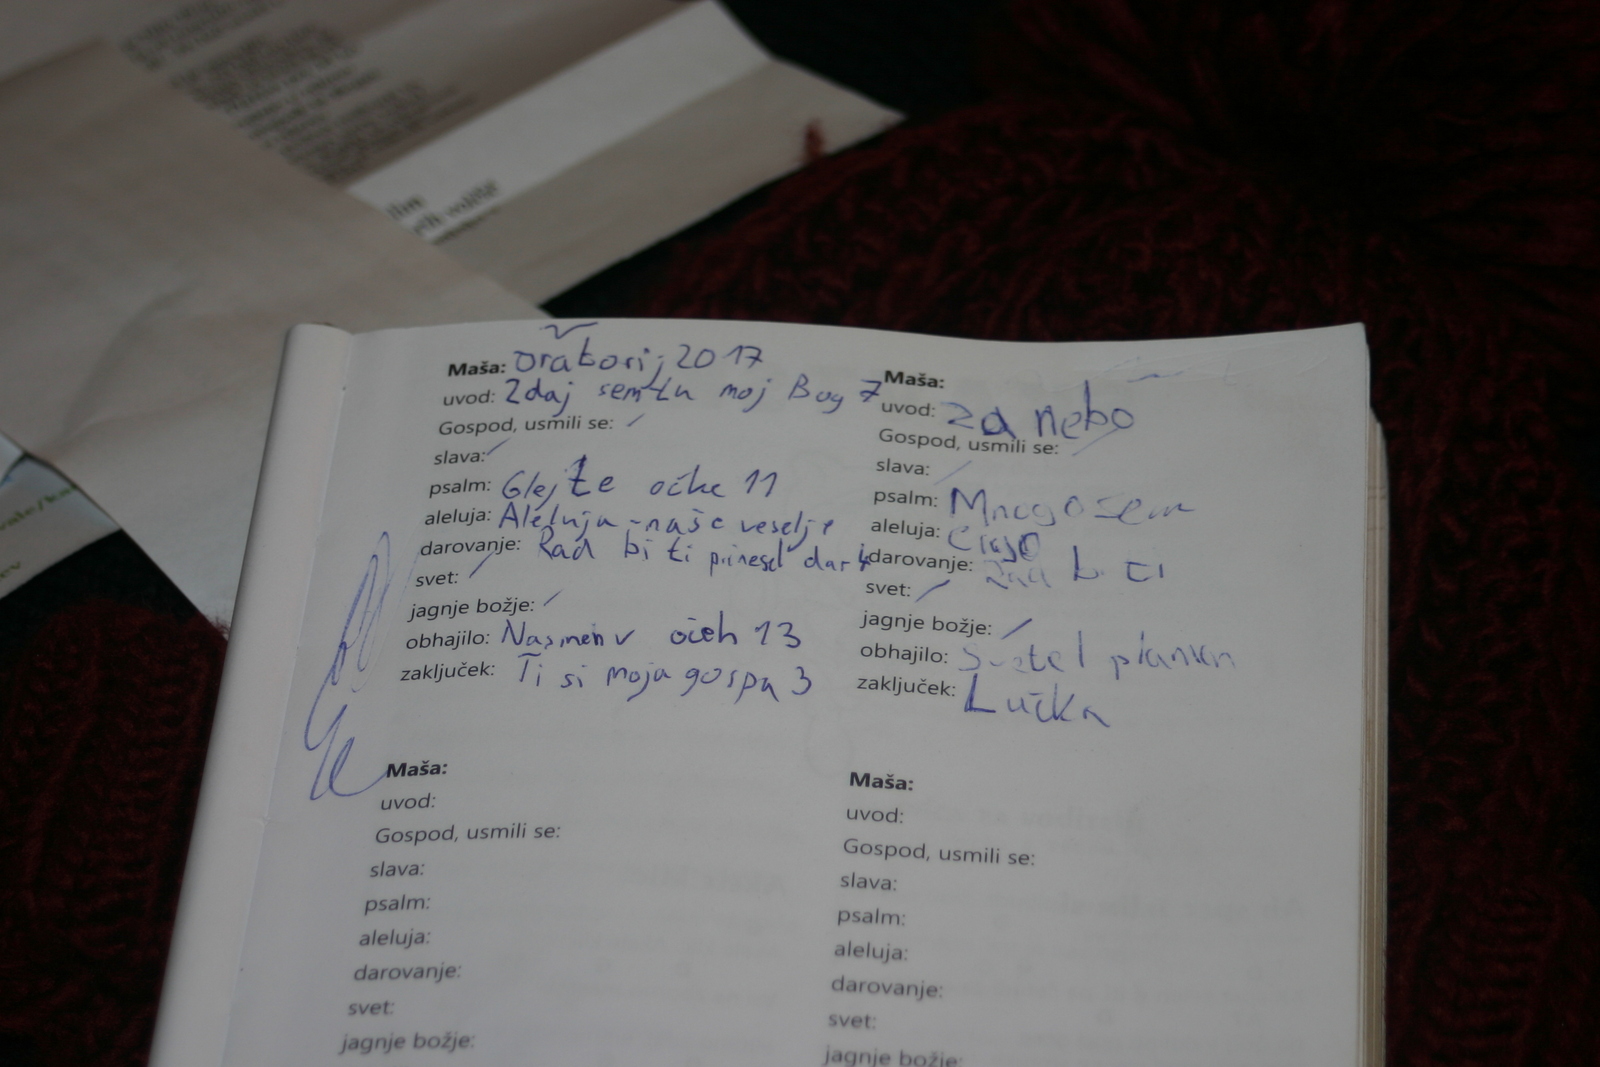 Maša: oratorij 2017
uvod: Zdaj sem tu moj Bog 7
Gospod, usmili se: /
slava: /
psalm: Glejte očke 11
aleluja: Aleluja - naše veselje
darovanje: Rad bi ti prinesel dar 4
svet: /
jagnje božje: /
obhajilo: Nasmeh v očeh 13
zaključek: Ti si moja gospa 3
Maša:
uvod: za nebo
Gospod, usmili se: /
slava: /
psalm: Mnogo sem
aleluja:
darovanje: Rad bi ti
svet: /
jagnje božje: /
obhajilo: Svetel plamen
zaključek: Lučka
Maša:
uvod:
Gospod, usmili se:
slava:
psalm:
aleluja:
darovanje:
svet:
jagnje božje:
Maša:
uvod:
Gospod, usmili se:
slava:
psalm:
aleluja:
darovanje:
svet:
jagnje božje: